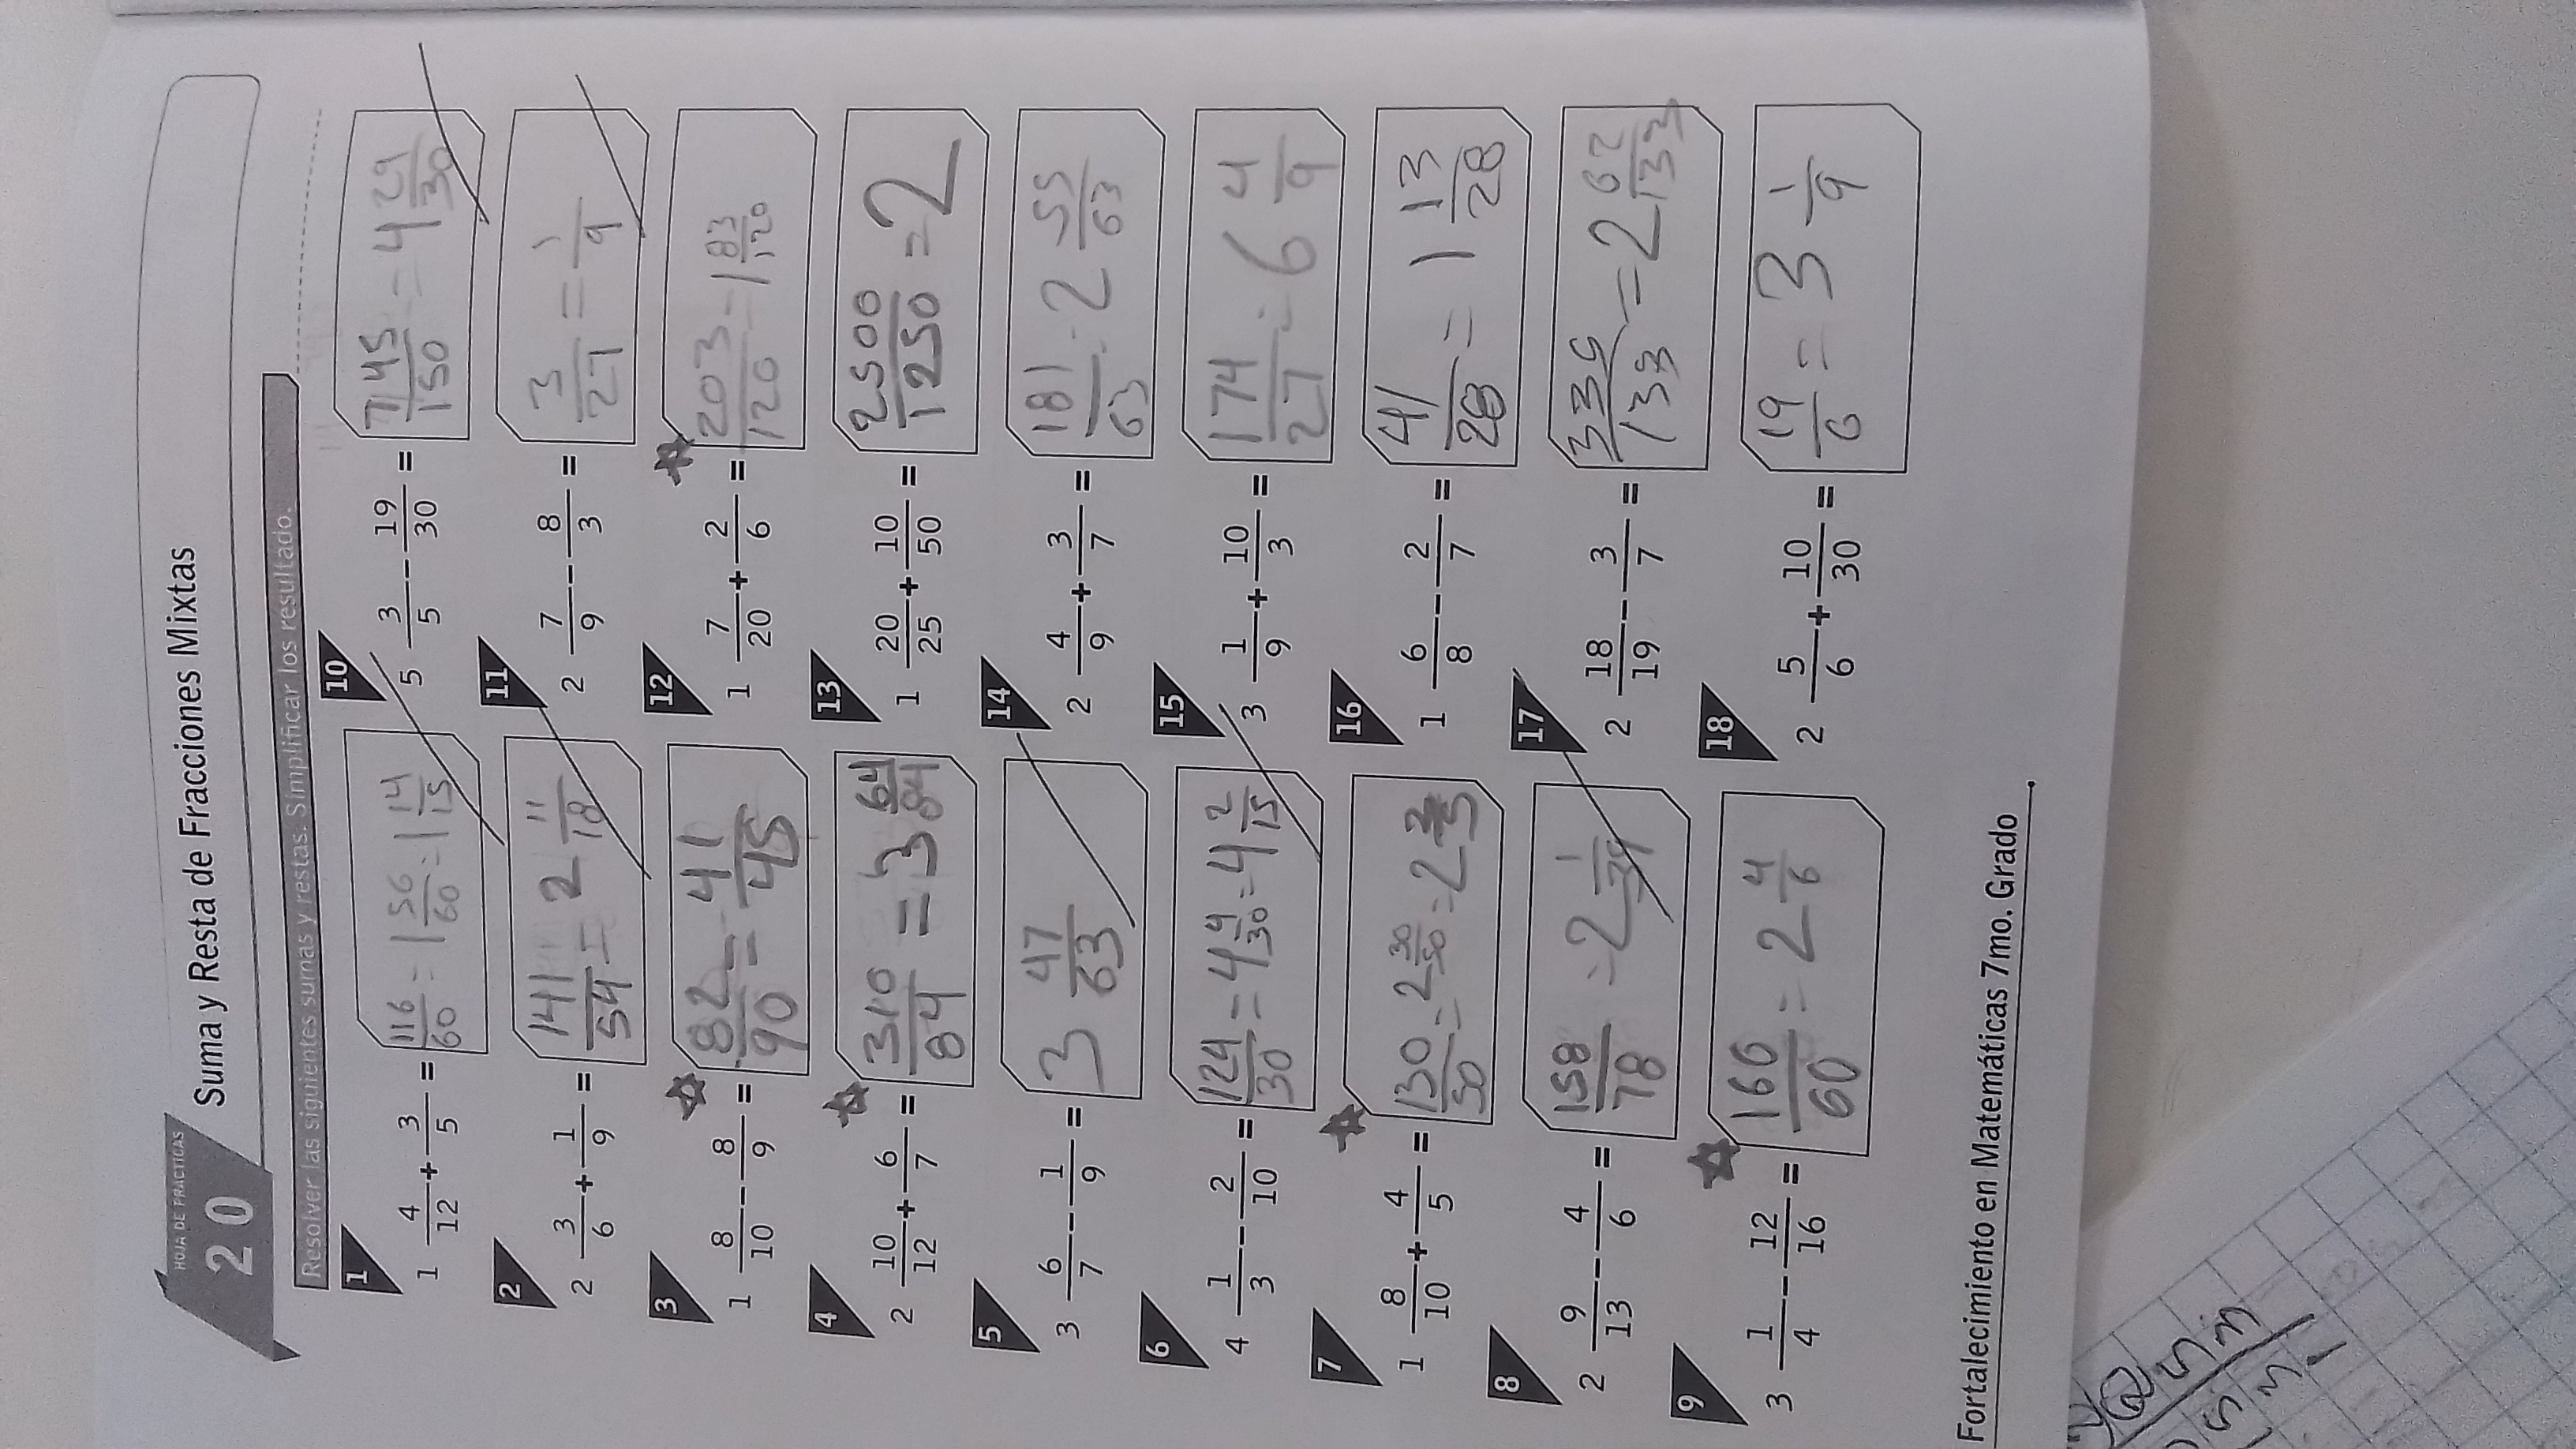 HOJA DE PRACTICAS
20
Suma y Resta de Fracciones Mixtas
Resolver las siguientes sumas y restas. Simplificar los resultado.
1
1 4/12 + 3/5 = 116/60 = 1 56/60 = 1 14/15
2
2 3/6 + 1/9 = 141/54 = 2 11/18
3
1 8/10 - 8/9 = 82/90 = 41/45
4
2 10/12 + 6/7 = 310/84 = 3 64/84
5
3 6/7 - 1/9 = 3 47/63
6
4 1/3 - 2/10 = 124/30 = 4 4/30 = 4 2/15
7
1 8/10 + 4/5 = 130/50 = 2 30/50 = 2 3/5
8
2 9/13 - 4/6 = 158/78 = 2 1/39
9
3 1/4 - 12/16 = 160/60 = 2 4/6
10
5 3/5 - 19/30 = 745/150 = 4 29/30
11
2 7/9 - 8/3 = 3/27 = 1/9
12
1 7/20 + 2/6 = 203/120 = 1 83/120
13
1 20/25 + 10/50 = 2500/1250 = 2
14
2 4/9 + 3/7 = 181/63 = 2 55/63
15
3 1/9 + 10/3 = 174/27 = 6 4/9
16
1 6/8 - 2/7 = 41/28 = 1 13/28
17
2 18/19 - 3/7 = 335/133 = 2 62/133
18
2 5/6 + 10/30 = 19/6 = 3 1/9
Fortalecimiento en Matemáticas 7mo. Grado